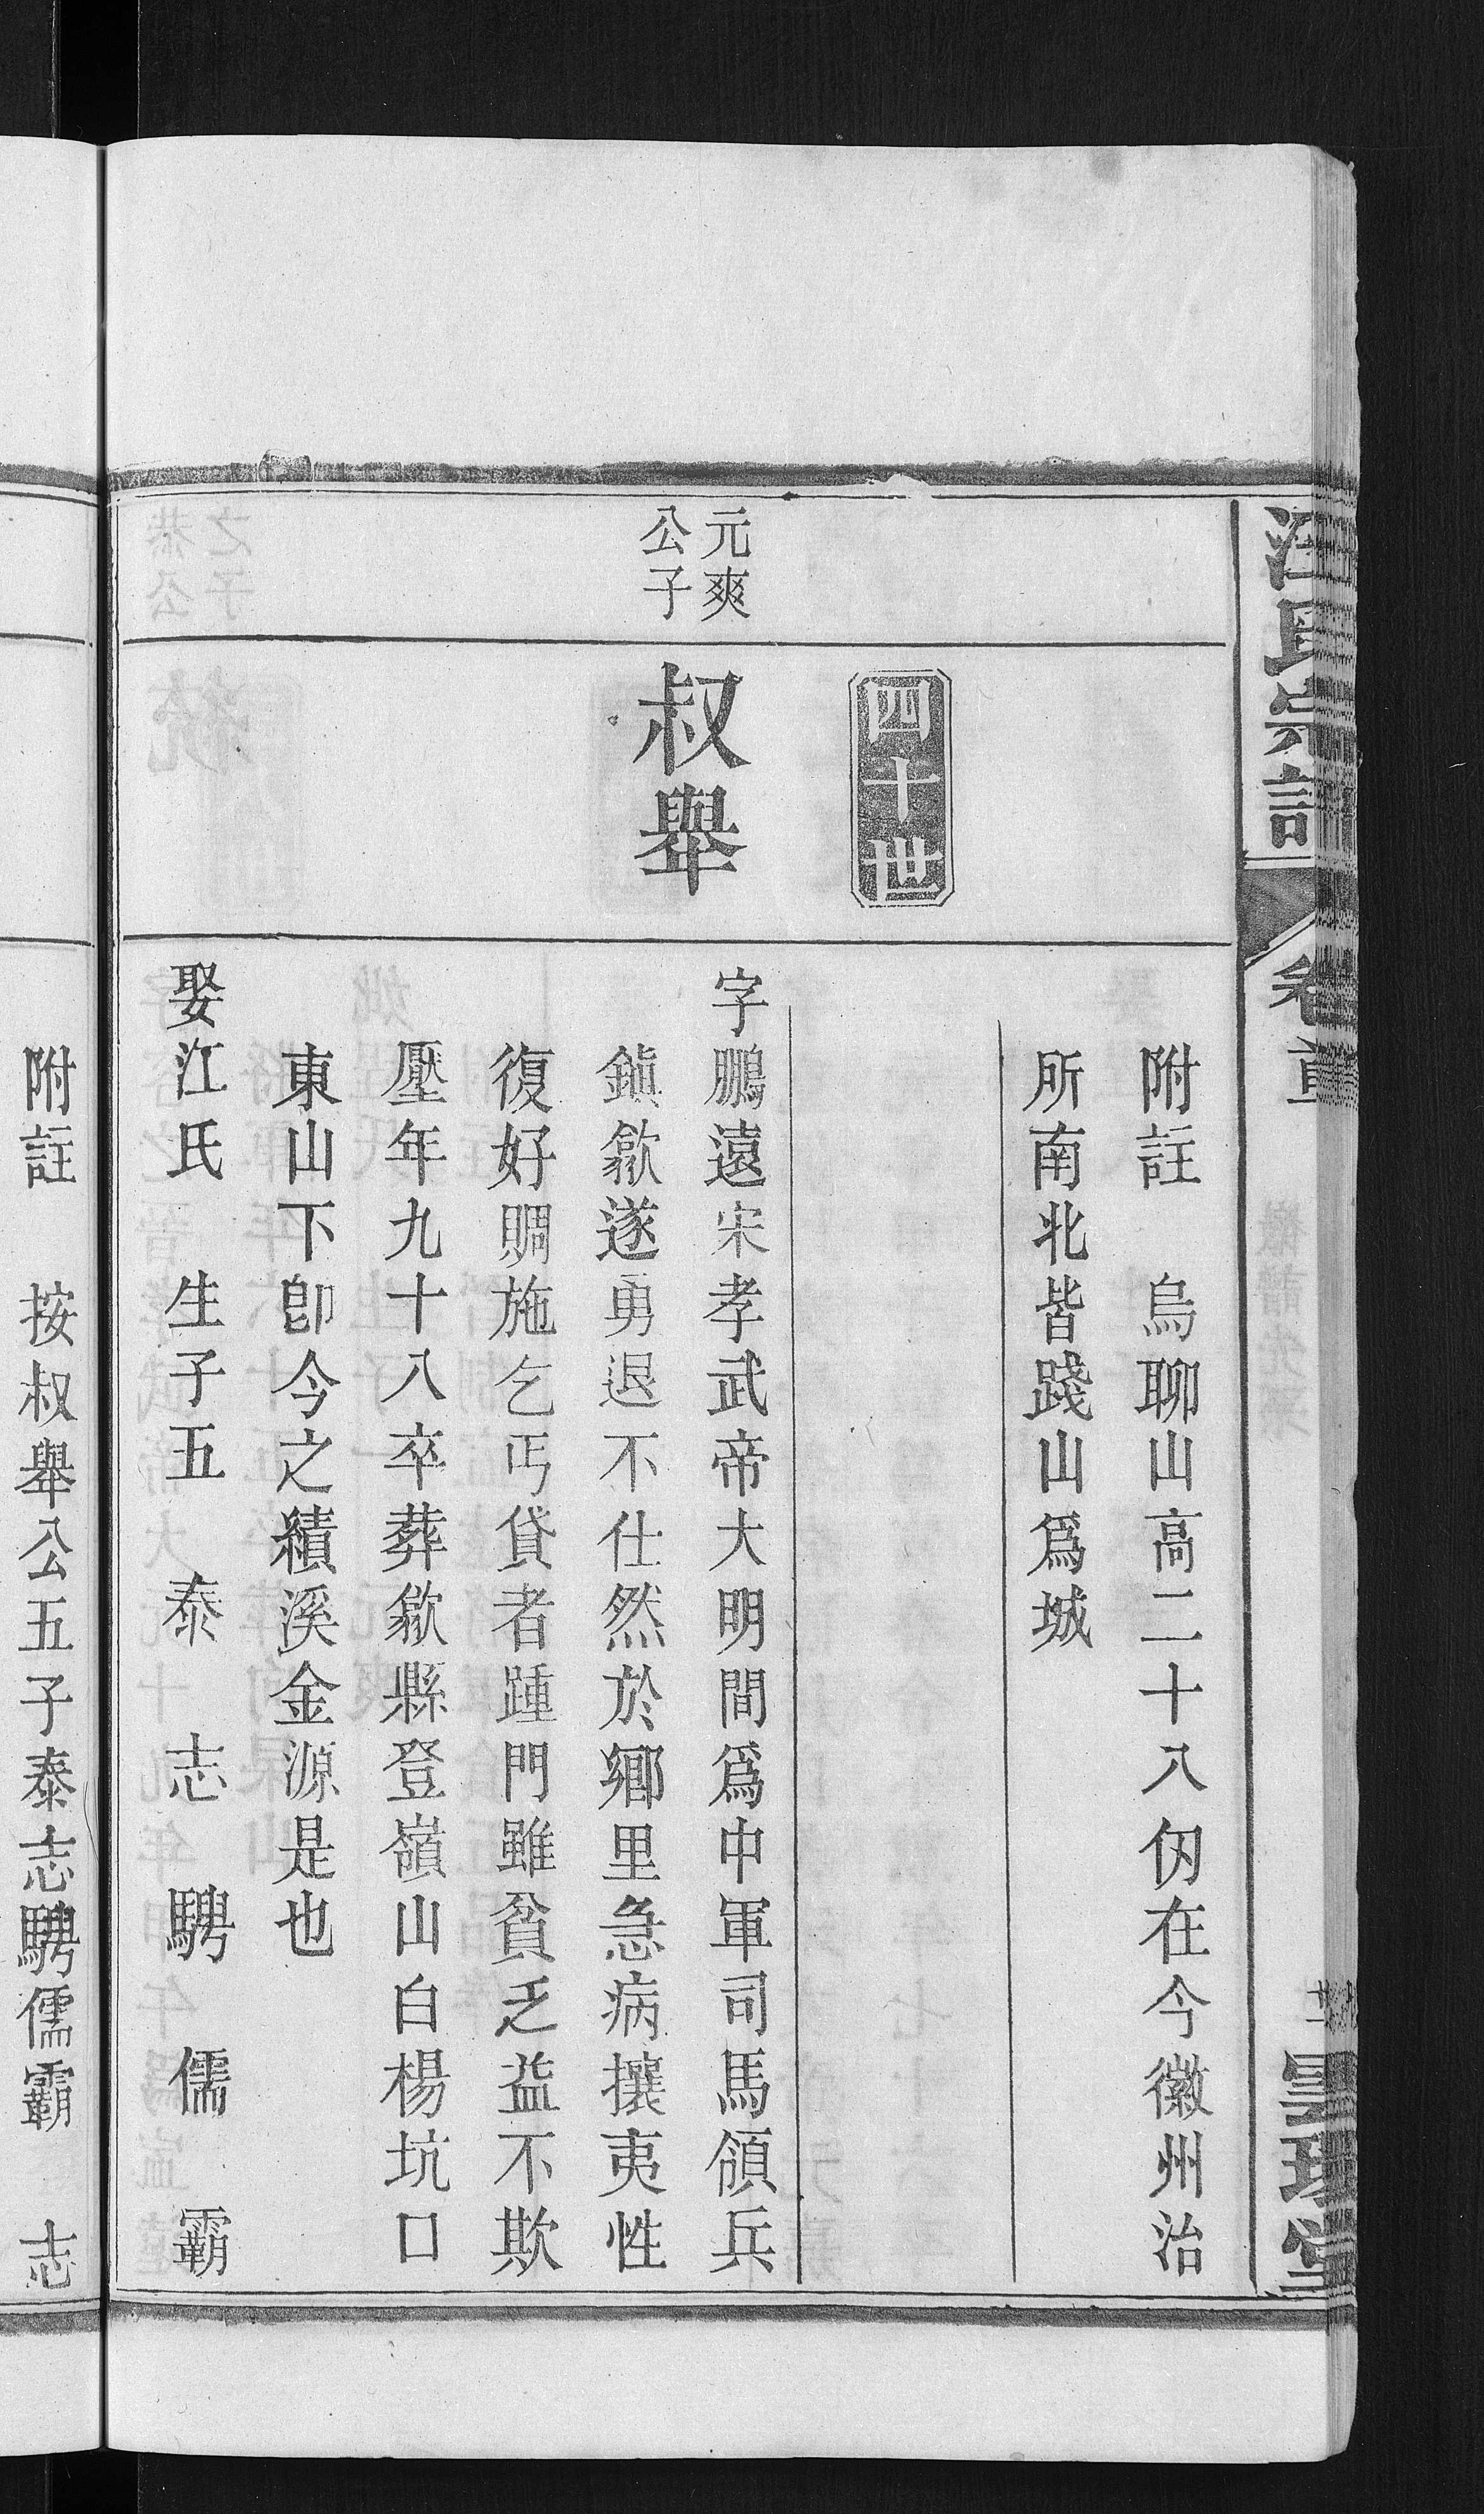 汪氏宗譜
卷首
附註　烏聊山高二十八仭在今徽州治
所南北皆踐山爲城
四十世
元爽
公子
叔舉
字鵬遠宋孝武帝大明間爲中軍司馬領兵
鎭歙遂勇退不仕然於鄉里急病攘夷性
復好賙施乞丐貸者踵門雖貧乏益不欺
壓年九十八卒葬歙縣登嶺山白楊坑口
東山下卽今之績溪金源是也
娶江氏　生子五　泰　志　騁　儒　霸
附註　按叔舉公五子泰志騁儒霸　志